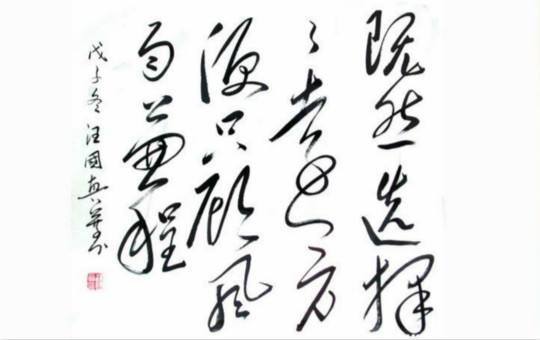 既然选择
了远方
便只顾風
雨兼程
戊子冬汪國真并书